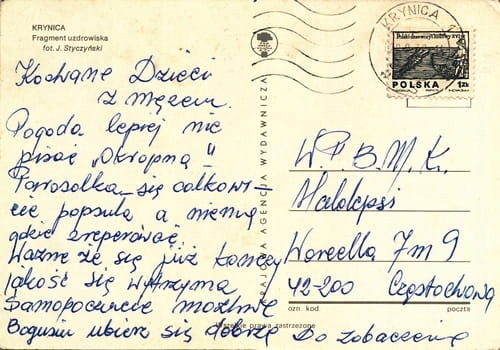 KRYNICA
Fragment uzdrowiska
fot. J. Styczyński
Kochane Dzieci
z mężem.
Pogoda lepiej nie
pisać „Okropna"
Parasolka się całkowi-
cie popsuła a niema
gdzie zreperować
Ważne że się już kończy
jakość się wytrzyma
Samopoczucie możliwe
Bogusiu ubierz się dobrze
Do zobaczenia
KRAJOWA AGENCJA WYDAWNICZA
Wszelkie prawa zastrzeżone
KRYNICA
POLSKA
1 ZŁ
W.P.B.M.K.
Małolepsi
Worcella 7m9
42-200 Częstochowa
ozn. kod
poczta